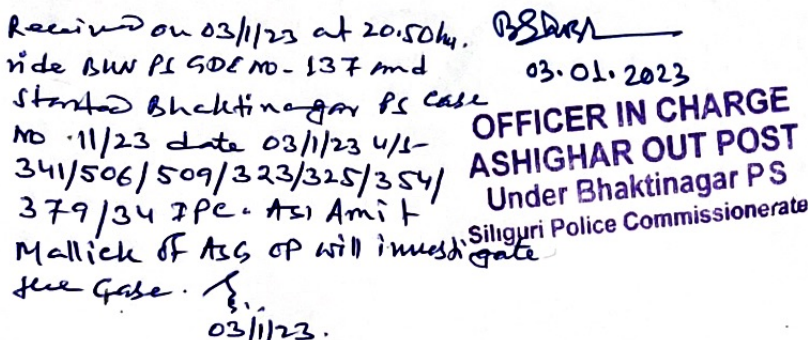 Received on 03/1/23 at 20.50 hrs.
vide BHN PS GDE NO - 137 and
Started Bhaktinagar PS Case
NO . 11/23 date 03/1/23 u/s-
341/506/509/323/325/354/
379/34 IPC. ASI Amit
Mallick of ASG OP will investigate
the Case.
03/1/23.
03.01.2023
OFFICER IN CHARGE
ASHIGHAR OUT POST
Under Bhaktinagar PS
Siliguri Police Commissionerate